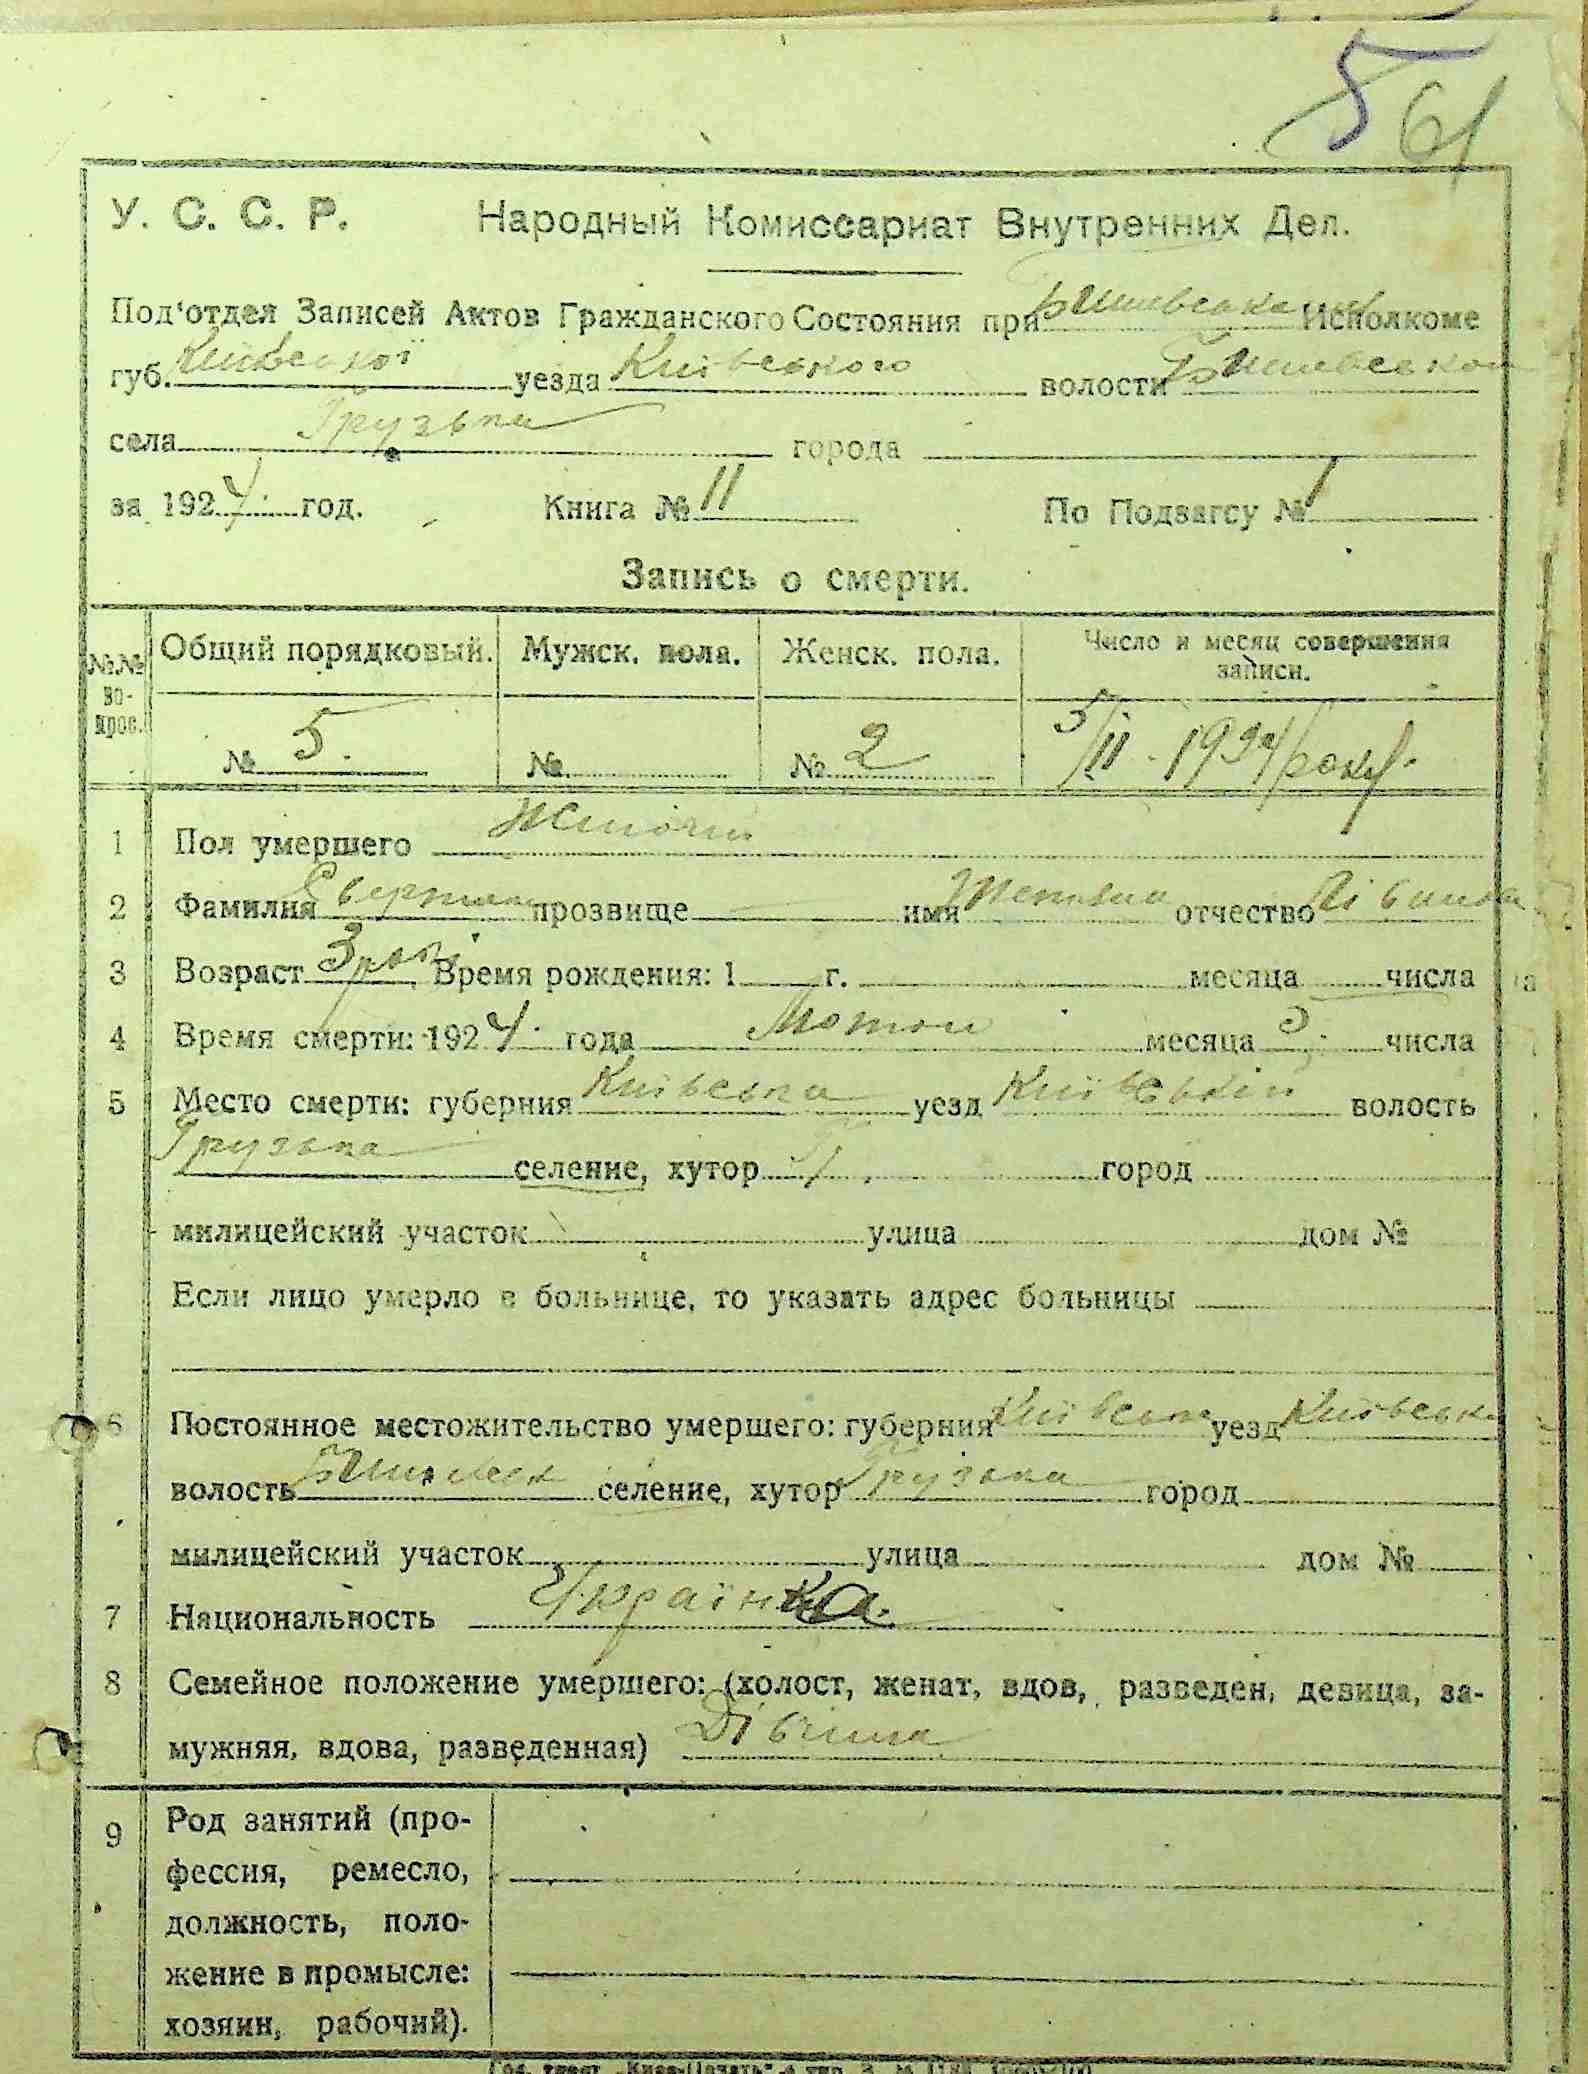 5 61
У. С. С. Р. Народный Комиссариат Внутренних Дел.
Под'отдел Записей Актов Гражданского Состояния при Бишівська Исполкоме
губ. Київської уезда Київського волости Бишівськой
села Грузька города
за 1924. год. Книга № 11 По Подзагсу № 1
Запись о смерти.
№№ во- прос. Общий порядковый. Мужск. пола. Женск. пола. Число и месяц совершения записи.
№ 5. № № 2 5/II - 1924 року.
1 Пол умершего Жіночи
2 Фамилия прозвище имя отчество
3 Возраст 3 роки Время рождения: 1 г. месяца числа
4 Время смерти: 1924. года месяца 5 числа
5 Место смерти: губерния Київська уезд Київський волость
Грузька селение, хутор город
милицейский участок улица дом №
Если лицо умерло в больнице, то указать адрес больницы
6 Постоянное местожительство умершего: губерния Київська уезд Київська
волость селение, хутор Грузька город
милицейский участок улица дом №
7 Национальность Українка.
8 Семейное положение умершего: (холост, женат, вдов, разведен, девица, за-
мужняя, вдова, разведенная) Дівчина
9 Род занятий (про-
фессия, ремесло,
должность, поло-
жение в промысле:
хозяин, рабочий).